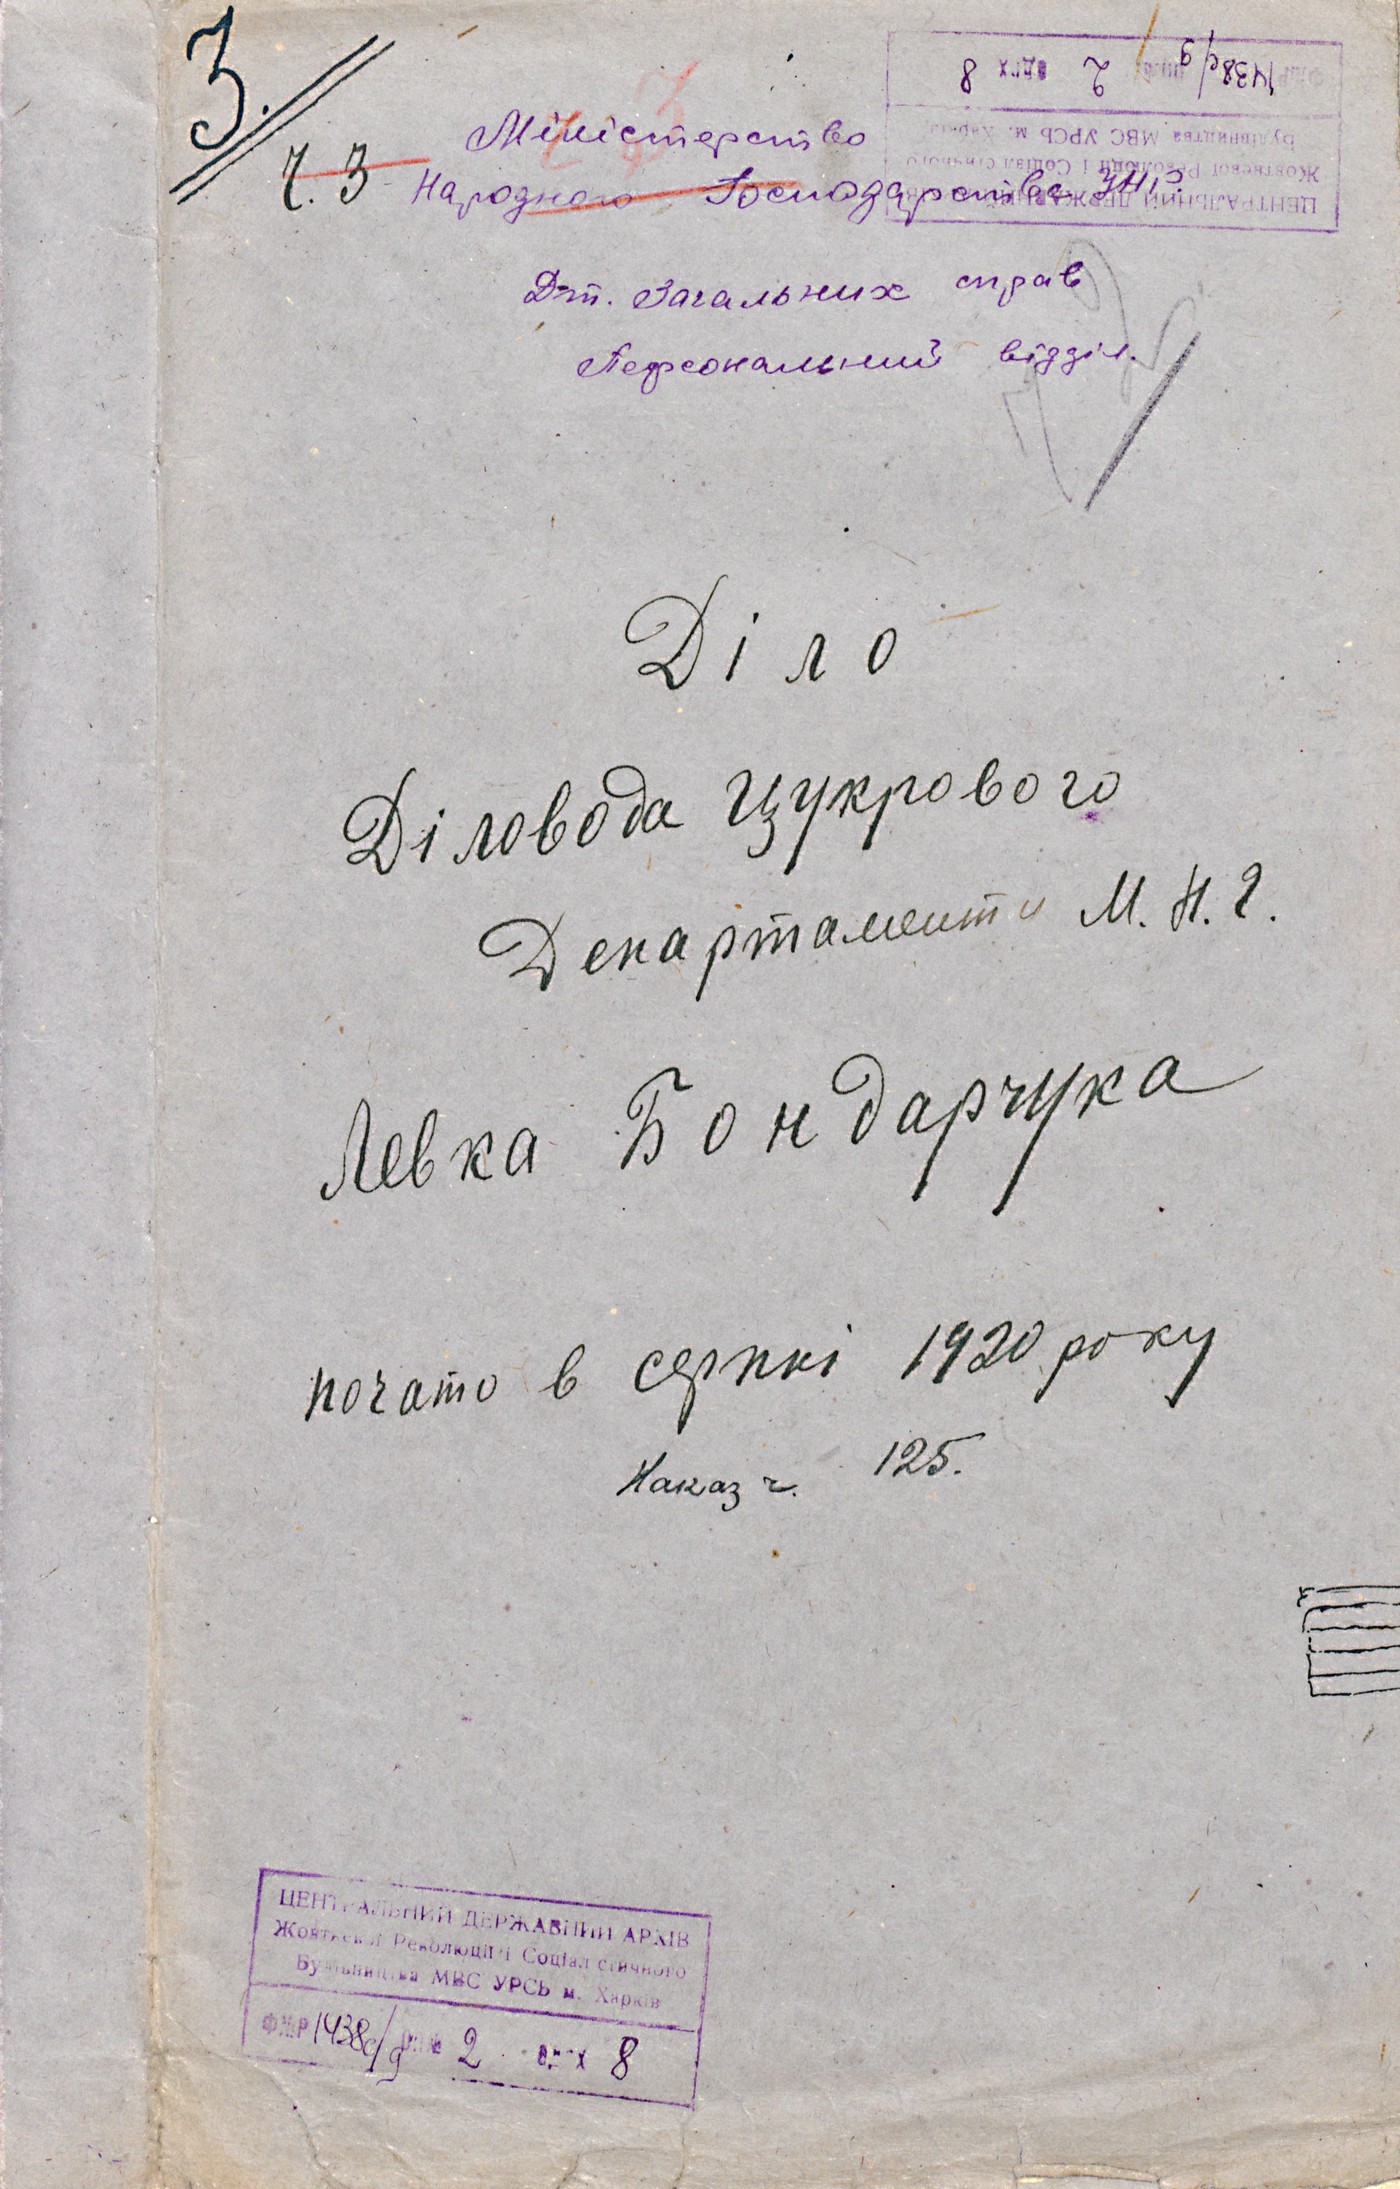 3.
Ч. 3
Міністерство
Народного Господарства УНР.
Дп. Загальних справ
Персональний відділ.
Діло
Діловода Цукрового
Департаменту М. Н. Г.
Левка Бондарчука
почато в серпні 1920 року
Наказ ч. 125.
ЦЕНТРАЛЬНИЙ ДЕРЖАВНИЙ АРХІВ
Жовтневої Революції і Соціалістичного
Будівництва МВС УРСР м. Харків
Ф№Р 1438с/9 оп.№ 2 од.зх 8
ЦЕНТРАЛЬНИЙ ДЕРЖАВНИЙ АРХІВ
Жовтневої Революції і Соціалістичного
Будівництва МВС УРСР м. Харків
Ф№Р 1438с/9 оп.№ 2 од.зх 8